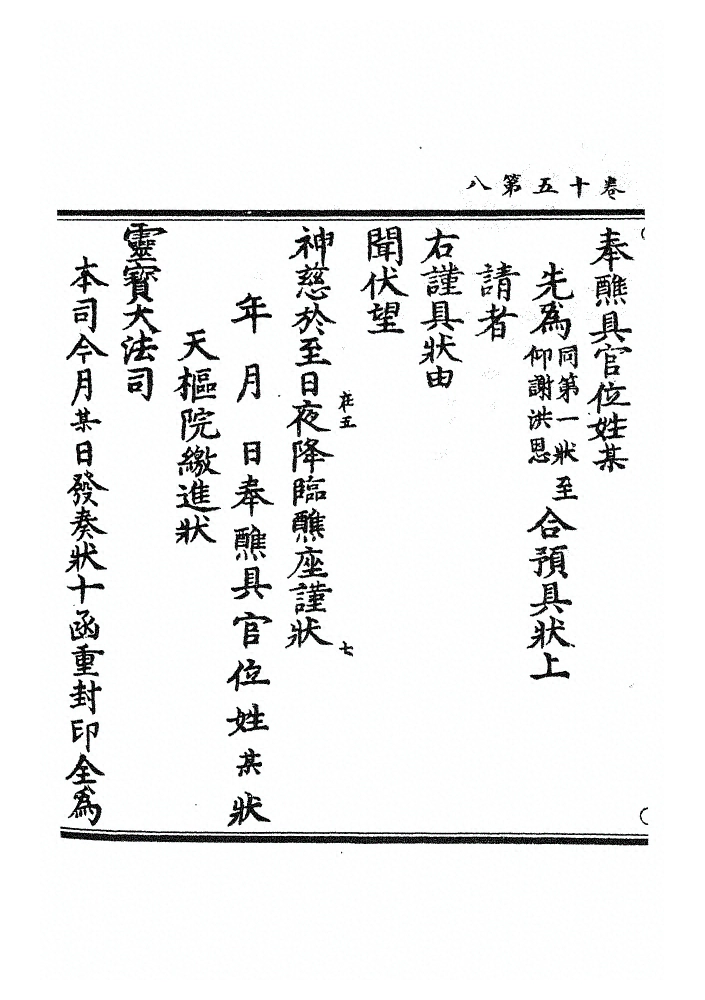 卷十五第八
奉醮具官位姓某
先為同第一狀至仰謝洪恩合預具狀上
請者
右謹具狀由
聞伏望
神慈於至日夜降臨醮座謹狀
在五
七
年 月 日奉醮具官位姓某狀
天樞院繳進狀
靈寶大法司
本司今月某日發奏狀十函重封印全為